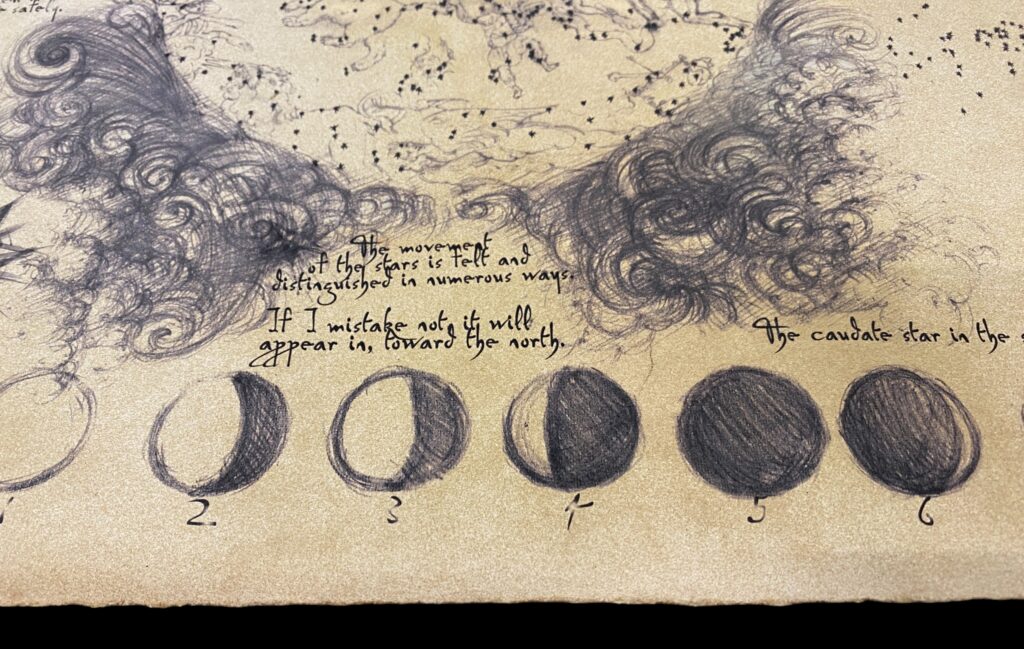 safely.
The movement
of the stars is felt and
distinguished in numerous ways.
If I mistake not, it will
appear in, toward the north.
The caudate star in the
1 2 3 4 5 6